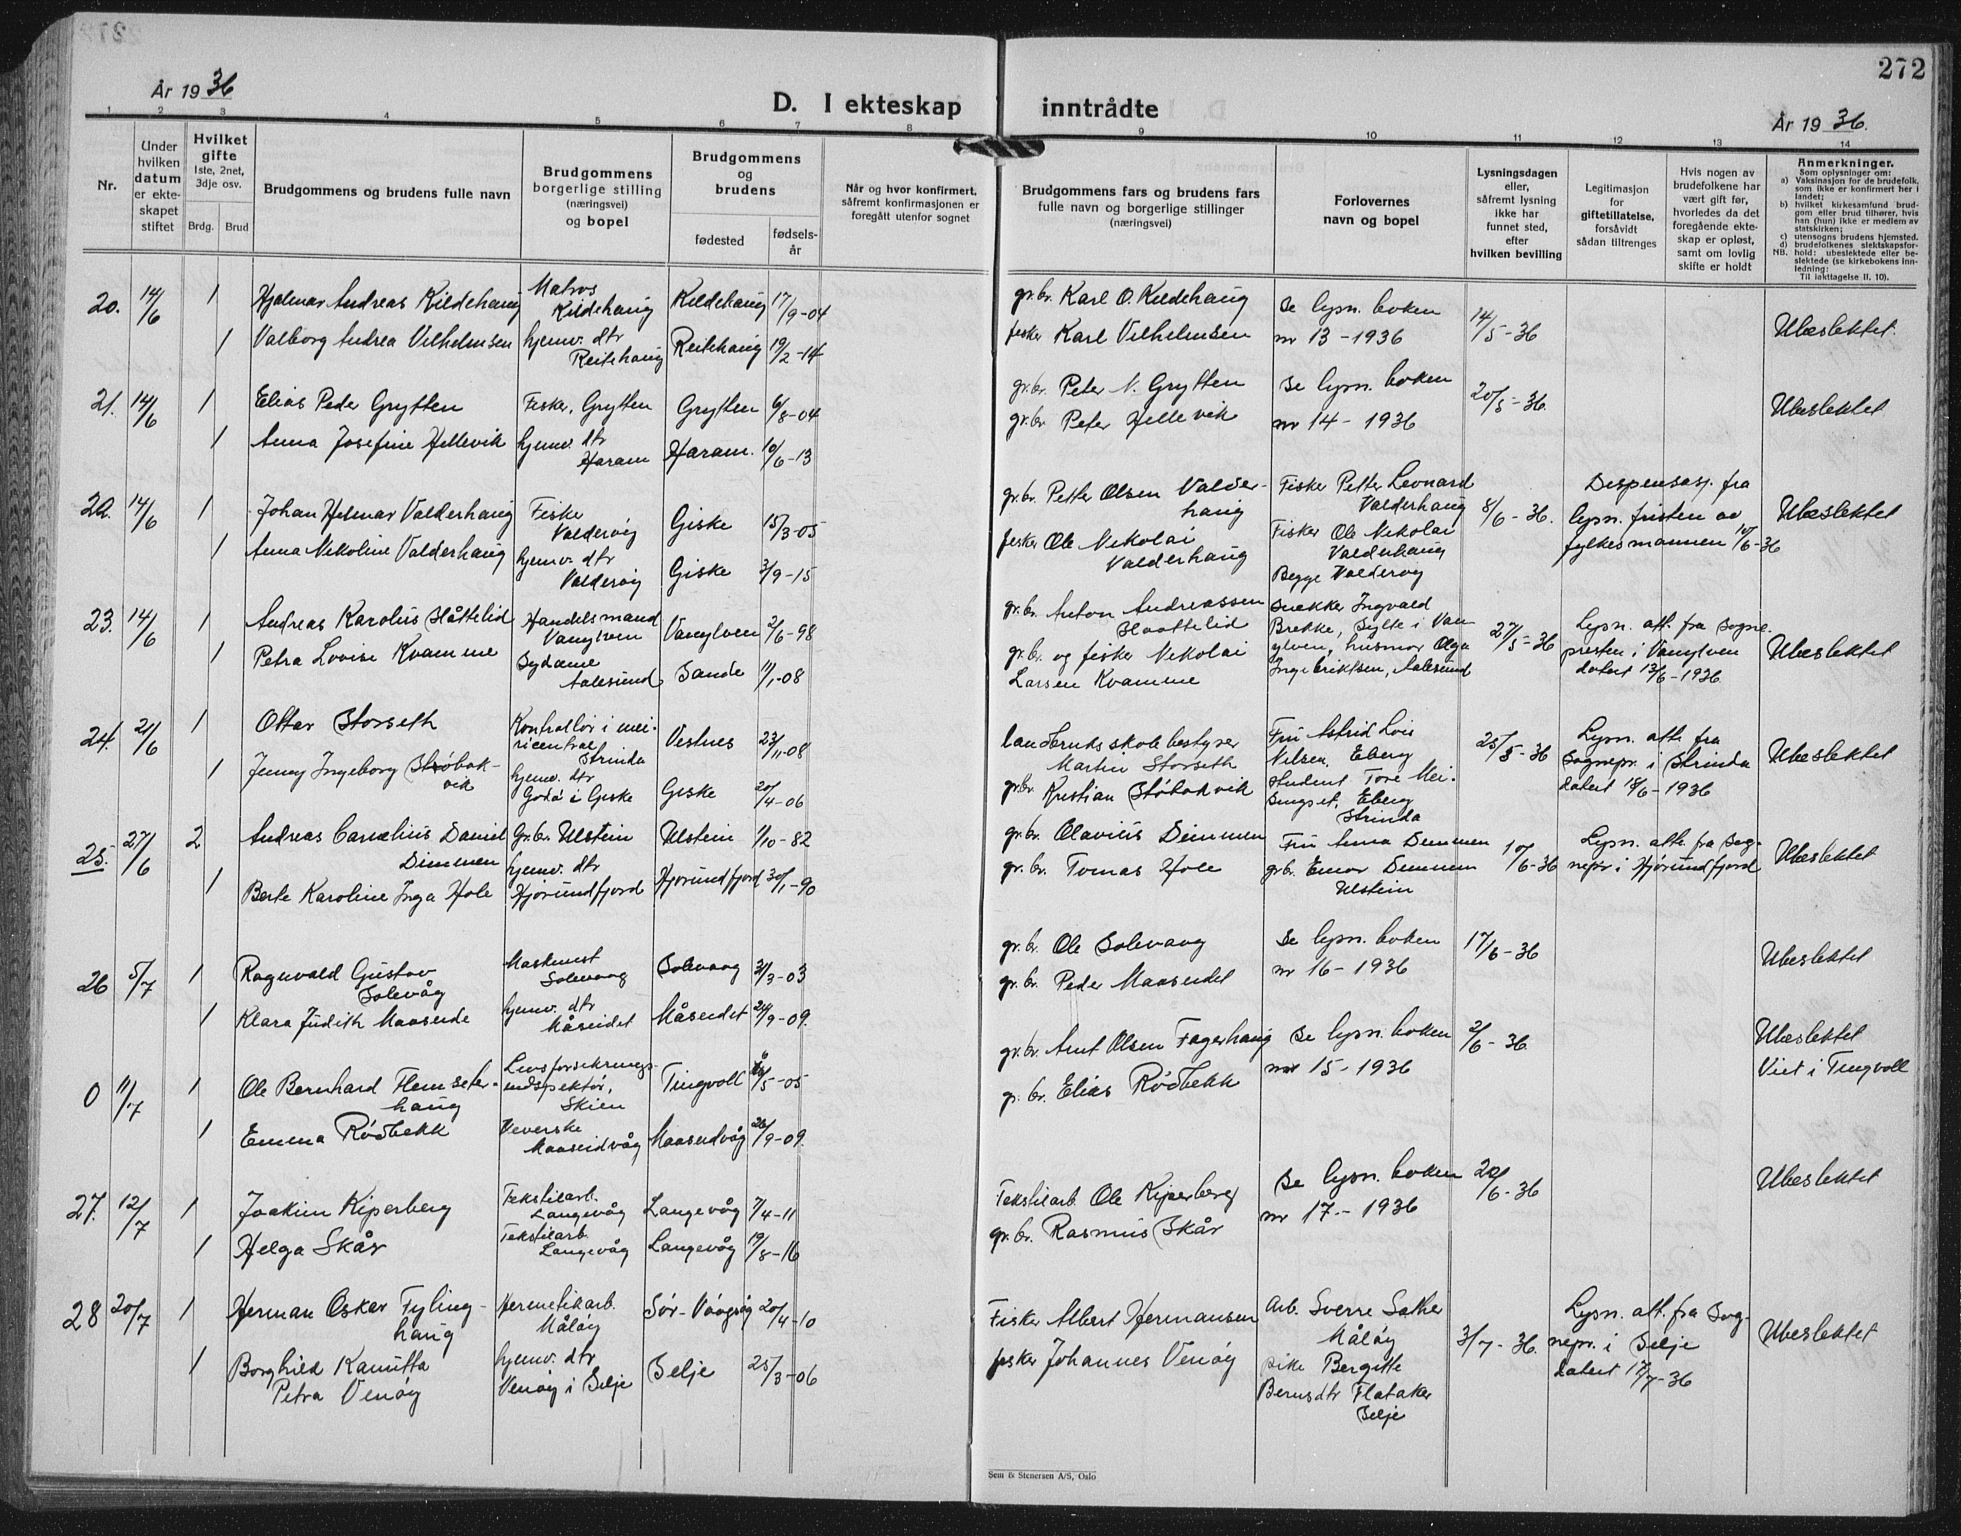 272
År 1936
D. I ekteskap inntrådte
År 1936.
1 2 3 4 5 6 7 8 9 10 11 12 13 14
Nr.
Under
hvilken
datum
er ekte-
skapet
stiftet
Hvilket
gifte
1ste, 2net,
3dje osv.
Brdg. Brud
Brudgommens og brudens fulle navn
Brudgommens
borgerlige stilling
(næringsvei)
og bopel
Brudgommens
og
brudens
fødested
fødsels-
år
Når og hvor konfirmert,
såfremt konfirmasjonen er
foregått utenfor sognet
Brudgommens fars og brudens fars
fulle navn og borgerlige stillinger
(næringsvei)
Forlovernes
navn og bopel
Lysningsdagen
eller,
såfremt lysning
ikke har
funnet sted,
efter
hvilken bevilling
Legitimasjon
for
giftetillatelse,
forsåvidt
sådan tiltrenges
Hvis nogen av
brudefolkene har
vært gift før,
hvorledes da det
foregående ekte-
skap er opløst,
samt om lovlig
skifte er holdt
Anmerkninger.
Som oplysninger om:
a) Vaksinasjon for de brudefolk,
som ikke er konfirmert her i
landet;
b) hvilket kirkesamfund brud-
gom eller brud tilhører, hvis
han (hun) ikke er medlem av
statskirken;
c) utensogns brudens hjemsted.
d) brudefolkenes slektskapsfor-
NB. hold: ubeslektede eller be-
slektede (se kirkebokens inn-
ledning:
Til iakttagelse II. 10).
20. 14/6 1 Hjalmar Andreas Kildehaug Matros Kildehaug Kildehaug 17/9-04 gr.br. Karl O. Kildehaug Se lysn. boken 14/5-36 Ubeslektet.
1 Valborg Andrea Vilhelmsen hjemv. dtr Reitehaug Reitehaug 19/2-14 fisker Karl Vilhelmsen nr 13-1936
21. 14/6 1 Elias Peder Grytten Fisker, Grytten Grytten 6/8-04 gr.br. Peter N. Grytten Se lysn. boken 20/5-36. Ubeslektet
1 Anna Josefine Hellevik hjemv. dtr Haram Haram. 10/6-13 gr.br. Peter Hellevik nr 14-1936
22. 14/6 1 Johan Helmar Valderhaug Fisker Valderøy Giske 15/3-05 gr.br. Petter Olsen Valder-
haug Fisker Petter Leonard
Valderhaug 8/6-36. Dispensasj. fra
lysn. fristen av
fylkesmannen 10/6-36 Ubeslektet
1 Anna Nikoline Valderhaug hjemv. dtr Valderøy Giske 3/9-15 fisker Ole Nikolai
Valderhaug Fisker Ole Nikolai
Valderhaug
Begge Valderøy
23. 14/6 1 Andreas Karolus Håttelid Handelsmand
Vanylven Vanylven 2/6-98 gr.br. Anton Andreassen
Haattelid Snekker Ingvald
Brekke, Sylte i Van
ylven, husmor Olga
Ingebriktsen, Aalesund 27/5-36 Lysn. att. fra Sogne-
presten i Vanylven
datert 13/6-1936. Ubeslektet
1 Petra Lovise Kvamme Sydame
Aalesund Sande 11/1-08 gr.br. og fisker Nikolai
Larsen Kvamme
24. 21/6 1 Ottar Storseth Kontrollør i mei-
ricentral
Strinda Vestnes 23/11-08 landbruksskolebestyrer
Martin Storseth Fru Astrid Lois
Nilsen, Eberg
Student Tore Mei-
singset, Eberg
Strinda 25/5-36 Lysn. att. fra
Sognepr. i Strinda
datert 18/6-1936 Ubeslektet
1 Jenny Ingeborg Støbak-
vik hjemv. dtr
Godø i Giske Giske 20/4-06 gr.br. Kristian Støbakvik
25. 27/6 2 Andreas Cornelius Daniel
Dimmen Gr.br. Ulstein Ulstein 1/10-82 gr.br. Olavius Dimmen Fru Anna Dimmen
grb. Emar Dimmen
Ulstein 10/6-36 Lysn. att. fra Sog-
nepr i Hjørundfjord Ubeslektet
1 Berte Karoline Inga Hole hjemv. dtr
Hjørundfjord Hjørundfjord 30/1-90 gr.br. Tomas Hole
26 5/7 1 Ragnvald Gustav
Solevåg Maskinist
Solevaag Solevaag 31/3-03 gr.br. Ole Solevaag Se lysn. boken
nr 16-1936 17/6-36 Ubeslektet
1 Klara Judith Maaseide hjemv. dtr
Måseidet Måseidet 24/9-09. gr.br. Peder Maaseidet
0 11/7 1 Ole Bernhard Flemseter-
haug Livsforsikrings-
inspektør,
Skien Tingvoll 5-05 gr.br. Arnt Olsen Fagerhaug Se lysn. boken
nr 15-1936 2/6-36. Ubeslektet
Viet i Tingvoll
1 Emma Rødbekk Veverske
Maaseidvåg Maaseidvåg 26/9-09. gr.br. Elias Rødbekk
27. 12/7 1 Joakim Kiperberg Tekstilarb.
Langevåg Langevåg 7/4-11 Tekstilarb. Ole Kiperberg Se lysn. boken
nr 17-1936 22/6-36 Ubeslektet
1 Helga Skår Tekstilarb.
Langevåg Langevåg 19/8-16 gr.br. Rasmus Skår
28 20/7 1 Herman Oskar Tyling-
haug Hermetikarb.
Måløy Sør-Vaagsøy 20/4-10 Fisker Albert Hermansen Arb. Sverre Sæther
Måløy
pike Bergitte
Berntsdtr Flataker
Selje 3/7-36. Lysn. att. fra Sog-
nepr. i Selje
datert 17/7-36 Ubeslektet
1 Borghild Kanutta
Petra Venøy hjemv. dtr
Venøy i Selje Selje 25/3-06 fisker Johannes Venøy
Sem & Stenersen A/S, Oslo